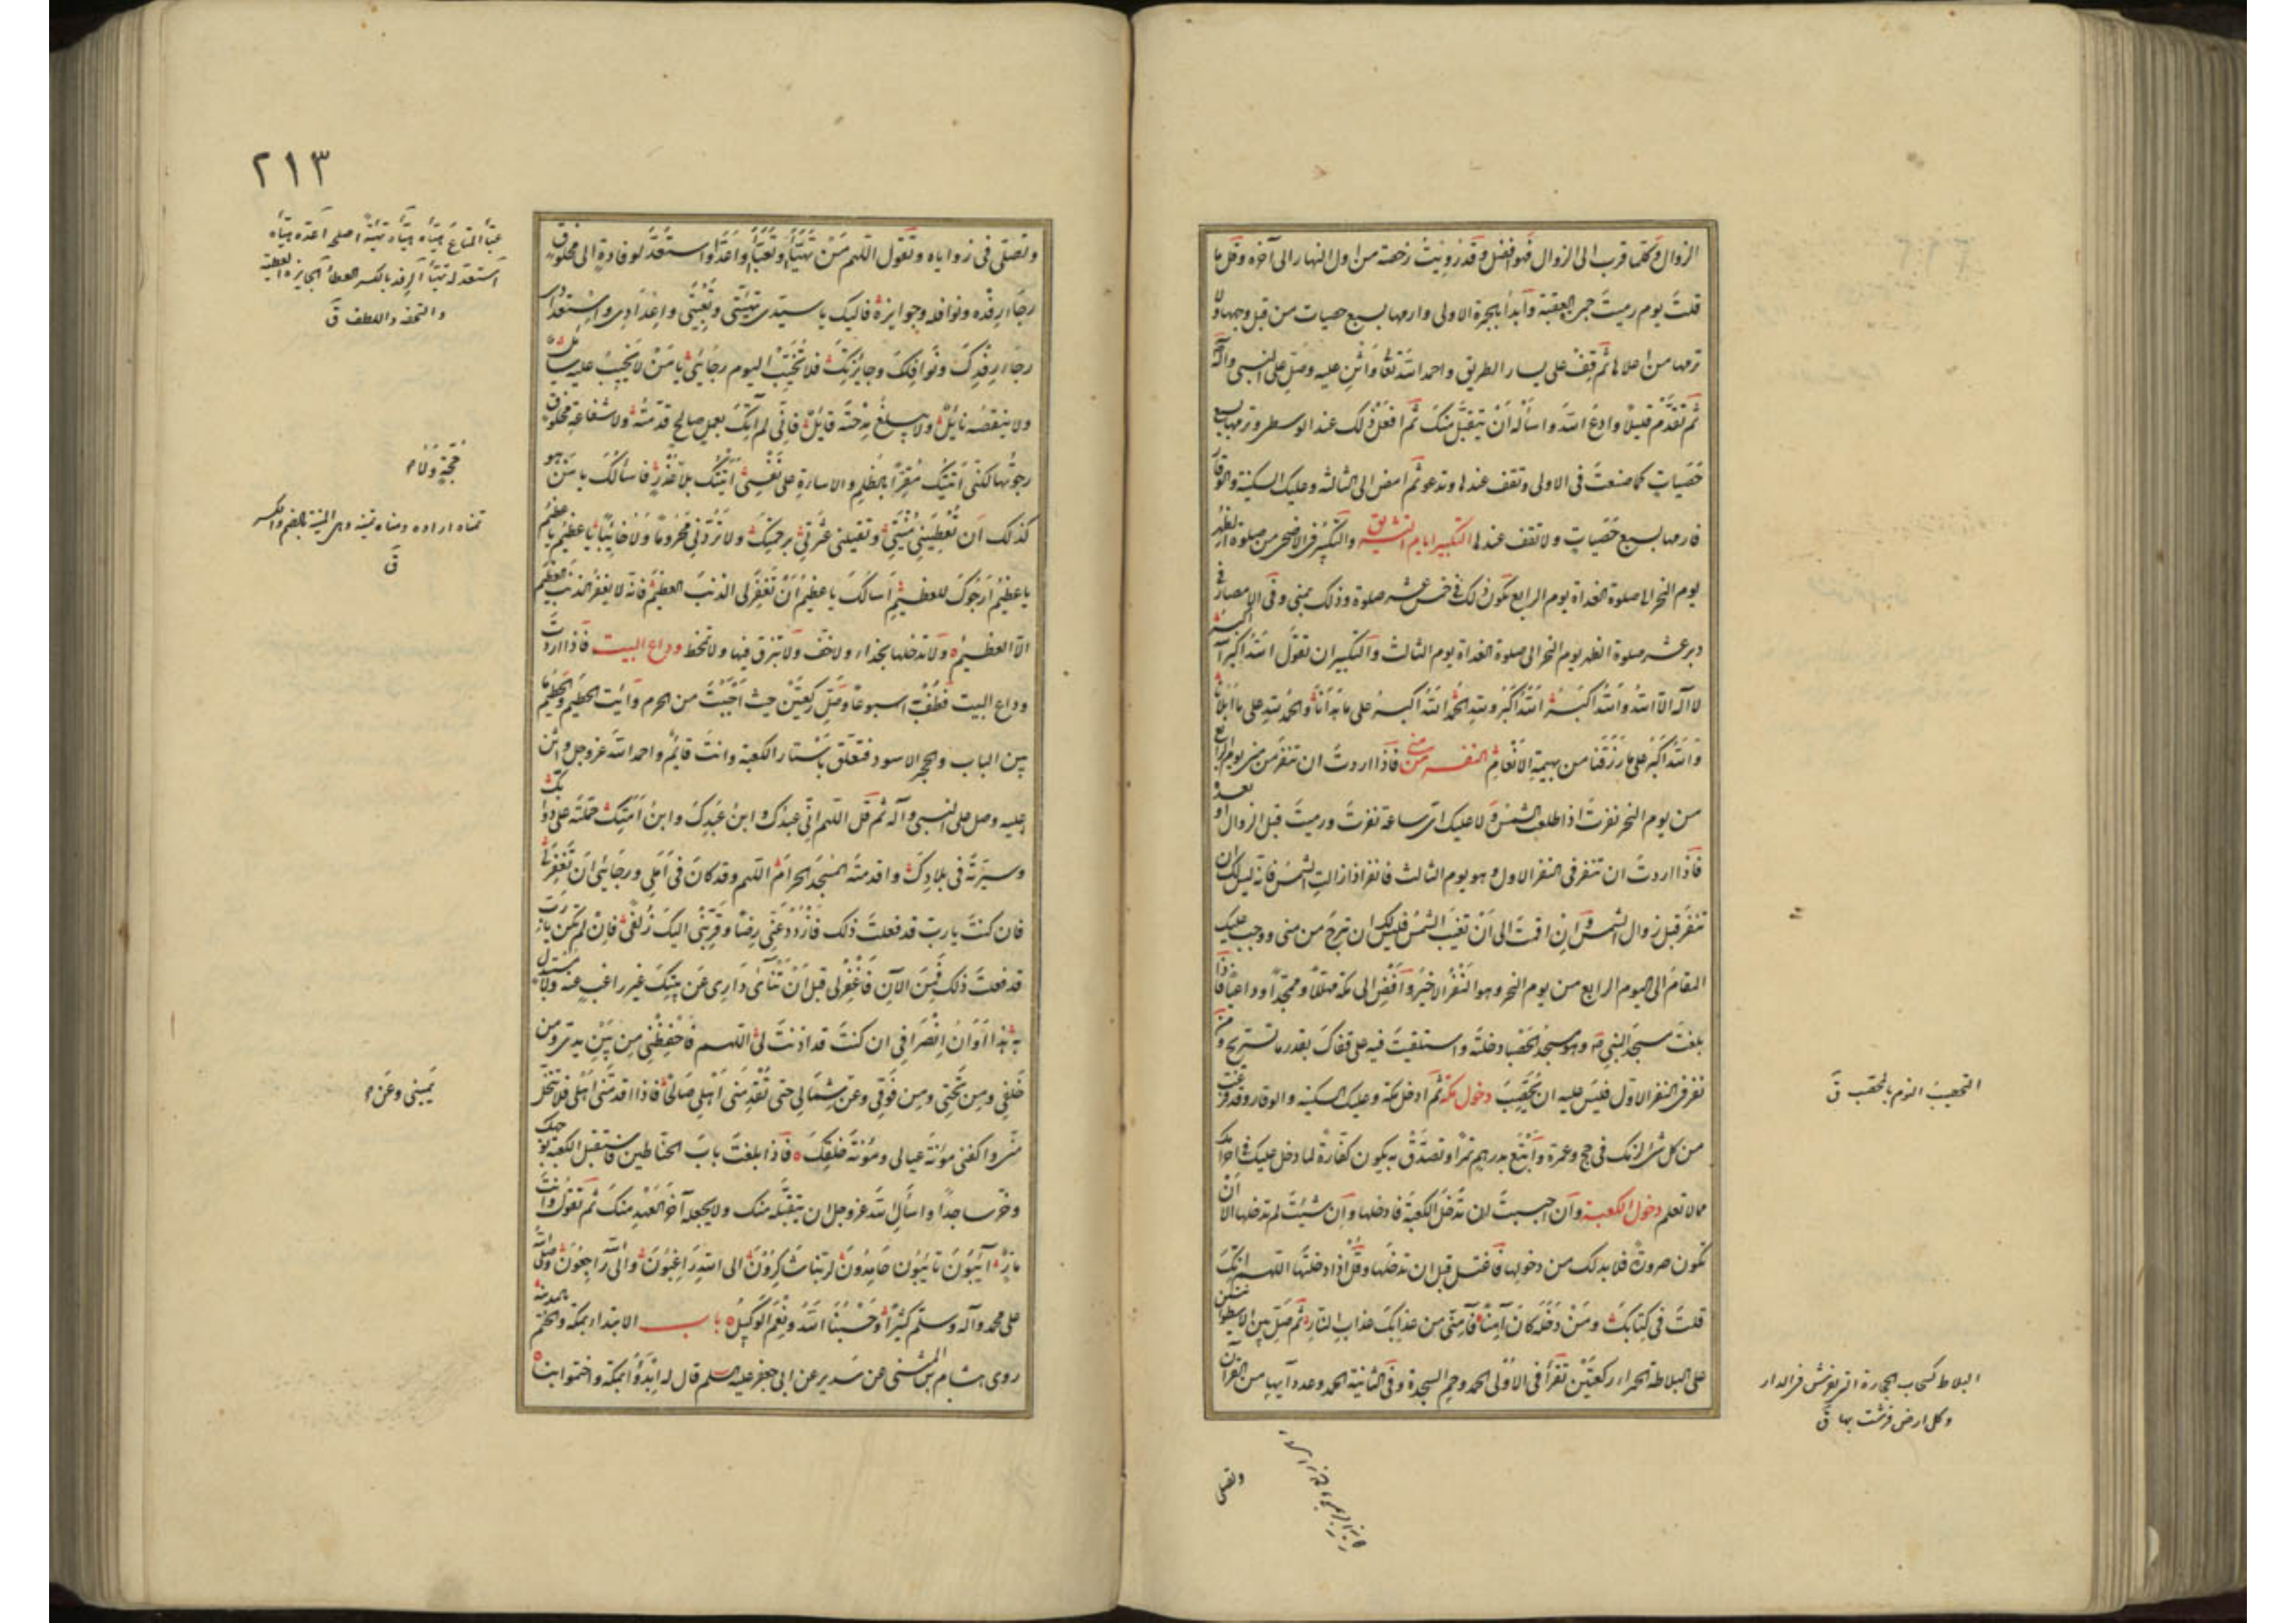 الزوال وكلما قرب الى الزوال فهو افضل وقد رويت رخصة من اول النهار الى آخره وقل ما
قلت يوم رميت جمرة العقبة وابدأ بالجمرة الاولى وارمها بسبع حصيات من قبل وجهها ولا
ترمها من اعلاها ثم قف على يسار الطريق واحمد الله تعالى واثن عليه وصل على النبي وآله
ثم تقدم قليلا وادع الله واسأله أن يتقبل منك ثم افعل ذلك عند الوسطى وترميها بسبع
حصيات كما صنعت في الاولى وتقف عندها وتدعو ثم امض الى الثالثة وعليك السكينة والوقار
فارمها بسبع حصيات ولا تقف عندها التكبير ايام التشريق والتكبير في الاضحى من صلوة الظهر
يوم النحر الى صلوة الغداة يوم الرابع يكون ذلك في خمس عشر صلوة وذلك بمنى وفي الامصار في
دبر عشر صلوة الظهر يوم النحر الى صلوة الغداة يوم الثالث والتكبير ان تقول الله اكبر الله اكبر
لا اله الا الله والله اكبر الله اكبر ولله الحمد الله اكبر على ما هدانا والحمد لله على ما ابلانا
والله اكبر على ما رزقنا من بهيمة الانعام النفر من منى فاذا اردت ان تنفر من منى يوم الرابع
من يوم النحر نفرت اذا طلعت الشمس ولا عليك اي ساعة نفرت ورميت قبل الزوال او بعده
فاذا اردت ان تنفر في النفر الاول وهو يوم الثالث فانفر اذا زالت الشمس فانه ليس لك ان
تنفر قبل زوال الشمس وان اقمت الى ان تغيب الشمس فليس لك ان تخرج من منى ووجب عليك
المقام الى اليوم الرابع من يوم النحر وهو النفر الاخير وافض الى مكة مهللا وممجدا وداعيا فاذا
بلغت مسجد النبي وهو مسجد الحصباء دخلته واستلقيت فيه على قفاك بقدر ما تستريح ومن
نفر في النفر الاول فليس عليه ان يحصب دخول مكة ثم ادخل مكة وعليك السكينة والوقار وقد فرغت
من كل شيء لزمك في حج وعمرة وابتع بدرهم تمرا وتصدق به يكون كفارة لما دخل عليك في احرامك
مما لا تعلم دخول الكعبة وان احببت ان تدخل الكعبة فادخلها وان شئت لم تدخلها الا ان
تكون صرورة فلا بد لك من دخولها فاغتسل قبل ان تدخلها وقل اذا دخلتها اللهم انك
قلت في كتابك ومن دخله كان آمنا فآمني من عذابك عذاب النار ثم صل بين الاسطوانتين
على البلاطة الحمراء ركعتين تقرأ في الاولى الحمد وحم السجدة وفي الثانية الحمد وعدد آيها من القرآن
وتصلي
التحصيب النوم بالمحصب ق
البلاط كسحاب الحجارة التي تفرش في الدار
وكل ارض فرشت بها ق
٢١٣
وتصلي في زواياه وتقول اللهم من تهيأ وتعبأ واعد واستعد لوفادة الى مخلوق
رجاء رفده ونوافله وجوايزه فاليك يا سيدي تهيئتي وتعبئتي واعدادي واستعدادي
رجاء رفدك ونوافلك وجائزتك فلا تخيب اليوم رجائي يا من لا يخيب عليه سائل
ولا ينقصه نائل ولا يبلغ مدحته قائل فاني لم آتك بعمل صالح قدمته ولا شفاعة مخلوق
رجوتها لكني اتيتك مقرا بالظلم والاساءة على نفسي اتيتك بلا عذر فاسألك يا من هو
كذلك ان تعطيني منيتي وتقيلني عثرتي برحمتك ولا تردني محروما ولا خائبا يا عظيم يا عظيم
يا عظيم ارجوك للعظيم اسألك يا عظيم ان تغفر لي الذنب العظيم فانه لا يغفر الذنب العظيم
الا العظيم ولا تدخلها بحذاء ولا خف ولا تبزق فيها ولا تمخط وداع البيت فاذا اردت
وداع البيت فطف به اسبوعا وصل ركعتين حيث احببت من الحرم وايت الحطيم والحطيم ما
بين الباب والحجر الاسود فتعلق باستار الكعبة وانت قائم واحمد الله عز وجل واثن
عليه وصل على النبي وآله ثم قل اللهم اني عبدك وابن عبدك وابن امتك حملته على دوابك
وسيرته في بلادك واقدمته المسجد الحرام اللهم وقد كان في املي ورجائي ان تغفر لي
فان كنت يا رب قد فعلت ذلك فازدد عني رضا وقربني اليك زلفى فان لم تكن يا رب
قد فعلت ذلك فمن الآن فاغفر لي قبل ان تنأى داري عن بيتك غير راغب عنه ولا مستبدل
به هذا اوان انصرافي ان كنت قد اذنت لي اللهم فاحفظني من بين يدي ومن
خلفي ومن تحتي ومن فوقي وعن شمالي حتى تقدمني اهلي صالحا فاذا اقدمتني اهلي فلا تتخل
مني واكفني مؤنة عيالي ومؤنة خلقك فاذا بلغت باب الحناطين فاستقبل الكعبة بوجهك
وخر ساجدا واسأل الله عز وجل ان يتقبله منك ولا يجعله آخر العهد منك ثم تقول وانت
مار آئبون تائبون حامدون لربنا شاكرون الى الله راغبون والى الله راجعون وصلى الله
على محمد وآله وسلم كثيرا وحسبنا الله ونعم الوكيل باب الابتداء بمكة والختم بالمدينة
روى هشام بن المثنى عن سدير عن ابي جعفر عليه السلم قال له ابدؤا بمكة واختموا بنا
استعد له تهيأ الرفد بالكسر العطاء الجايزة العطية
والتحفة واللطف ق
تمناه اراده ومناه تمنية وهي المنية بالضم والكسر
ق
يميني وعن